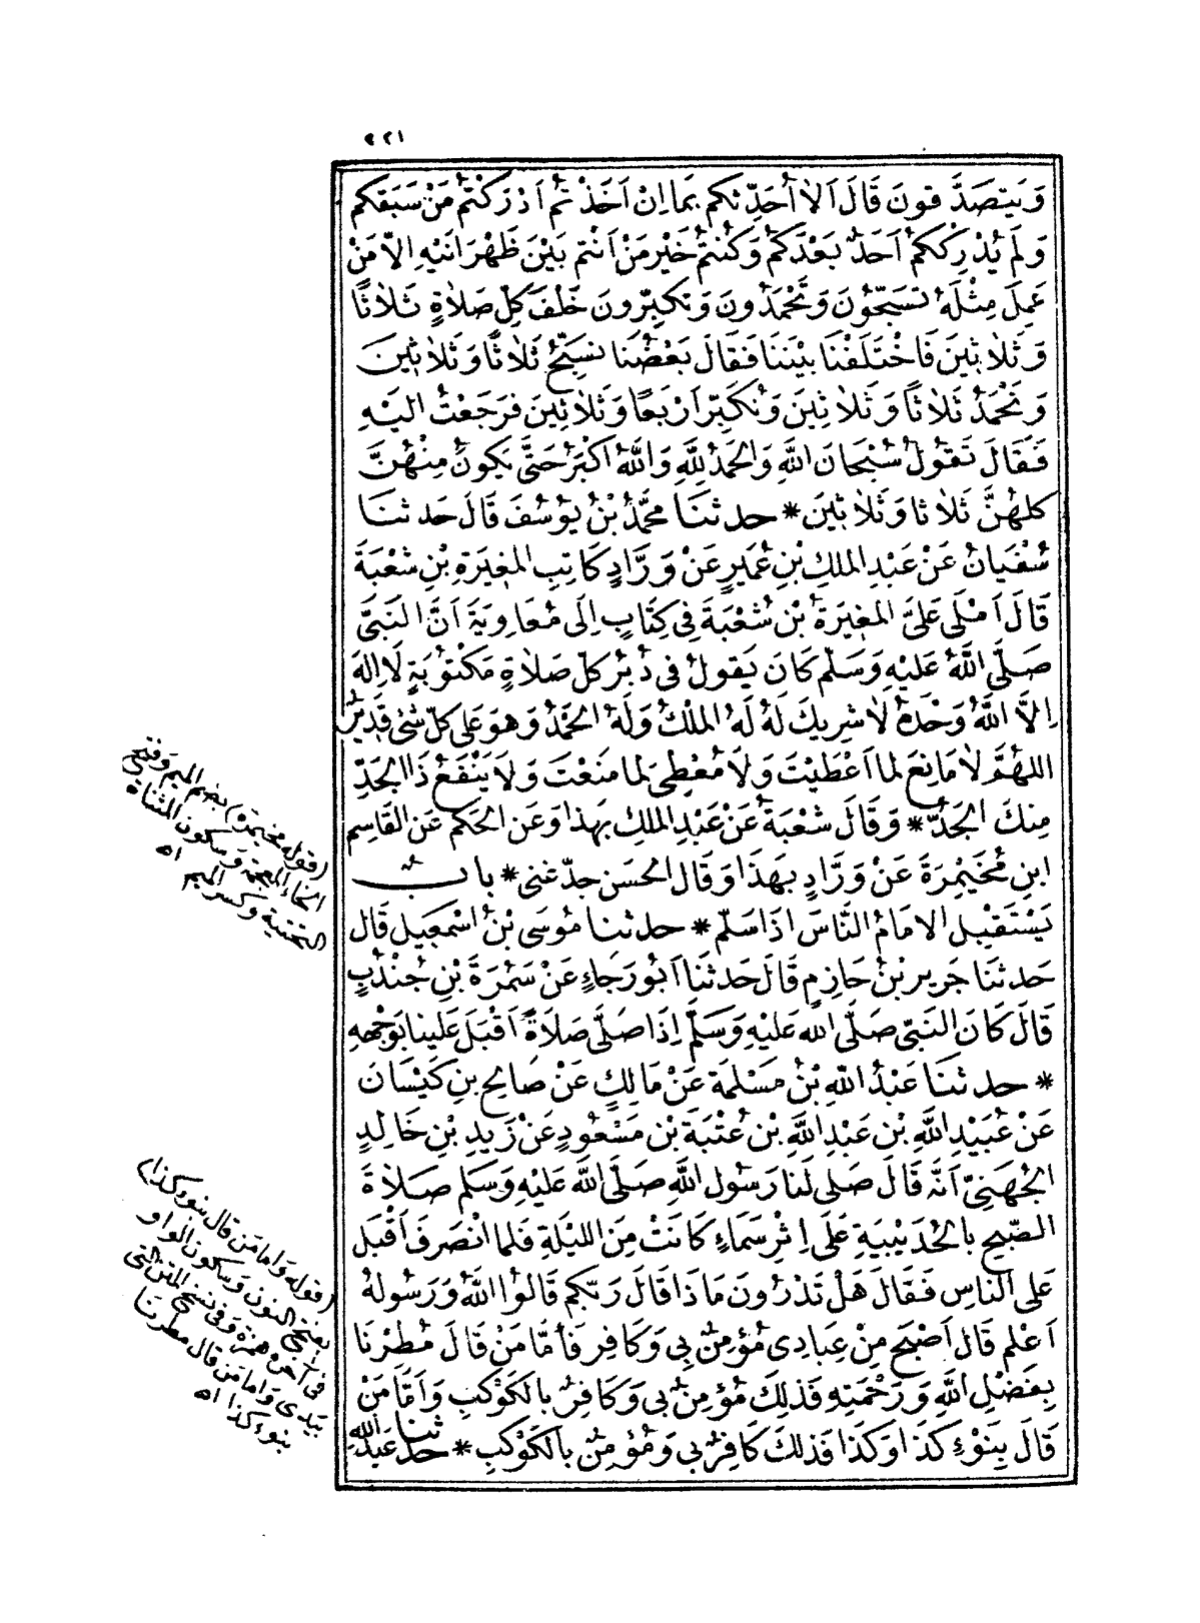 ٢٢١
وَيَتَصَدَّقُونَ قَالَ اَلَا اُحَدِّثُكُم بِمَا اِنْ اَخَذْتُمْ اَدْرَكْتُمْ مَنْ سَبَقَكُم
وَلَم يُدْرِكْكُمْ اَحَدٌ بَعْدَكُمْ وَكُنْتُمْ خَيْرَ مَنْ اَنْتُم بَيْنَ ظَهْرَانَيْهِ اِلَّا مَنْ
عَمِلَ مِثْلَهُ تُسَبِّحُونَ وَتَحْمَدُونَ وَتُكَبِّرُونَ خَلْفَ كُلِّ صَلَاةٍ ثَلَاثًا
وَثَلَاثِينَ فَاخْتَلَفْنَا بَيْنَنَا فَقَالَ بَعْضُنَا نُسَبِّحُ ثَلَاثًا وَثَلَاثِينَ
وَنَحْمَدُ ثَلَاثًا وَثَلَاثِينَ وَنُكَبِّرُ اَرْبَعًا وَثَلَاثِينَ فَرَجَعْتُ اِلَيْهِ
فَقَالَ تَقُولُ سُبْحَانَ اللَّهِ وَالْحَمْدُ لِلَّهِ وَاللَّهُ اَكْبَرُ حَتَّى يَكُونُ مِنْهُنَّ
كُلِّهُنَّ ثَلَاثًا وَثَلَاثِينَ * حدثنا مُحَمَّدُ بْنُ يُوسُفَ قَالَ حَدثنَا
سُفْيَانُ عَنْ عَبْدِ الْمَلِكِ بْنِ عُمَيْرٍ عَنْ وَرَّادٍ كَاتِبِ الْمُغِيرَةِ بْنِ شُعْبَةَ
قَالَ اَمْلَى عَلَىَّ الْمُغِيرَةُ بْنُ شُعْبَةَ فِى كِتَابٍ اِلَى مُعَاوِيَةَ اَنَّ النَّبِىَّ
صَلَّى اللَّهُ عَلَيْهِ وَسَلَّم كَانَ يَقُولُ فِى دُبُرِ كُلِّ صَلَاةٍ مَكْتُوبَةٍ لَا اِلٰهَ
اِلَّا اللَّهُ وَحْدَهُ لَا شَرِيكَ لَهُ لَهُ الْمُلْكُ وَلَهُ الْحَمْدُ وَهُوَ عَلَى كُلِّ شَىْءٍ قَدِيرٌ
اللَّهُمَّ لَا مَانِعَ لِمَا اَعْطَيْتَ وَلَا مُعْطِىَ لِمَا مَنَعْتَ وَلَا يَنْفَعُ ذَا الْجَدِّ
مِنْكَ الْجَدُّ * وَقَالَ شُعْبَةُ عَنْ عَبْدِ الْمَلِكِ بِهَذَا وَعَنِ الْحَكَمِ عَنِ الْقَاسِمِ
ابْنِ مُخَيْمِرَةَ عَنْ وَرَّادٍ بِهَذَا وَقَالَ الْحَسَنُ جَدٌّ غِنًى * باب
يَسْتَقْبِلُ الْاِمَامُ النَّاسَ اِذَا سَلَّم * حدثنا مُوسَى بْنُ اسْمٰعِيلَ قَالَ
حَدثنَا جَرِيرُ بْنُ حَازِمٍ قَالَ حَدثنَا اَبُو رَجَاءٍ عَنْ سَمُرَةَ بْنِ جُنْدُبٍ
قَالَ كَانَ النَّبِىُّ صَلَّى اللَّه عَلَيْهِ وَسَلَّم اِذَا صَلَّى صَلَاةً اَقْبَلَ عَلَيْنَا بِوَجْهِهِ
* حدثنا عَبْدُ اللَّهِ بْنُ مَسْلَمَةَ عَنْ مَالِكٍ عَنْ صَالِحِ بنِ كَيْسَانَ
عَنْ عُبَيْدِ اللَّهِ بْنِ عَبْدِ اللَّهِ بْنِ عُتْبَةَ بْنِ مَسْعُودٍ عَنْ زَيْدِ بْنِ خَالِدٍ
الْجُهَنِىِّ اَنَّهُ قَالَ صَلَّى لَنَا رَسُولُ اللَّهِ صَلَّى اللَّهُ عَلَيْهِ وَسَلَّم صَلَاةَ
الصُّبْحِ بِالْحُدَيْبِيَةِ عَلَى اِثْرِ سَمَاءٍ كَانَتْ مِنَ اللَّيْلَةِ فَلَمَّا انْصَرَفَ اَقْبَلَ
عَلَى النَّاسِ فَقَالَ هَلْ تَدْرُونَ مَاذَا قَالَ رَبُّكُم قَالُوا اللَّهُ وَرَسُولُهُ
اَعْلَم قَالَ اَصْبَحَ مِنْ عِبَادِى مُؤْمِنٌ بِى وَكَافِرٌ فَاَمَّا مَنْ قَالَ مُطِرْنَا
بِفَضْلِ اللَّهِ وَرَحْمَتِهِ فَذٰلِكَ مُؤْمِنٌ بِى وَكَافِرٌ بِالْكَوْكَبِ وَاَمَّا مَنْ
قَالَ بِنَوْءِ كَذَا وَكَذَا فَذٰلِكَ كَافِرٌ بِى وَمُؤْمِنٌ بِالْكَوْكَبِ * حدثنا عَبْدُ اللَّهِ
(قوله مخيمرة) بضم الميم وفتح
الخاء المعجمة وسكون المثناة
التحتية وكسر الميم اه
(قوله واما من قال بنوء كذا)
بفتح النون وسكون الواو
فى آخره همزة وفى نسخ المتن التى
بيدى واما من قال مطرنا
بنوء كذا اه